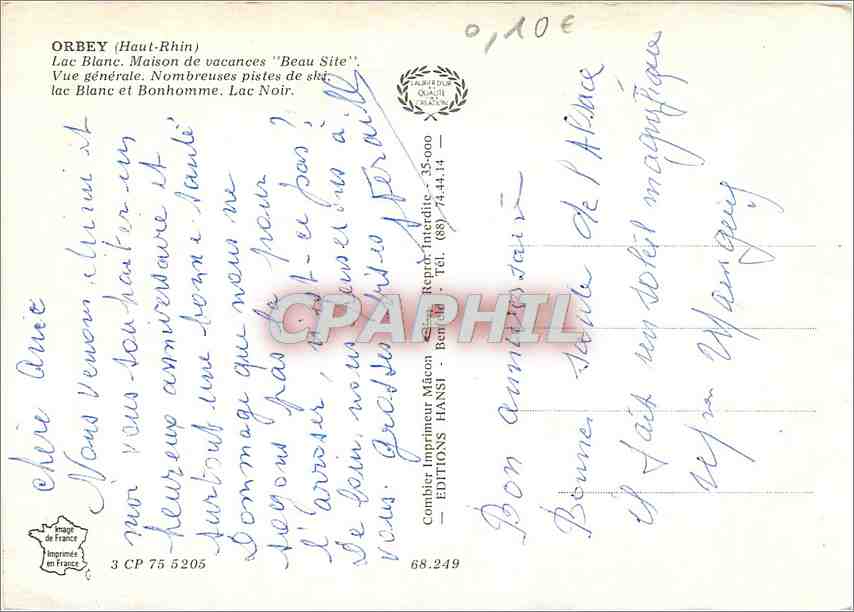 0,10€
ORBEY (Haut-Rhin)
Lac Blanc. Maison de vacances "Beau Site".
Vue générale. Nombreuses pistes de ski:
lac Blanc et Bonhomme. Lac Noir.
LAURIER D'OR
DE LA
QUALITÉ
CRÉATION
Chère Anie
Nous venons Mimi et
moi vous souhaiter un
heureux anniversaire et
surtout une bonne santé
Dommage que nous ne
soyons pas là pour
l'arroser, n'est-ce pas?
De loin, nous penserons à
vous. grosses bises
Combier Imprimeur Mâcon Repro. Interdite - 35-000
— EDITIONS HANSI - Benfeld - Tél. (88) 74.44.14 —
Bon anniversaire
Bonne santé de l'Alsace
il fait un soleil magnifique
CPARPHIL
Image
de France
Imprimée
en France
3 CP 75 5205
68.249